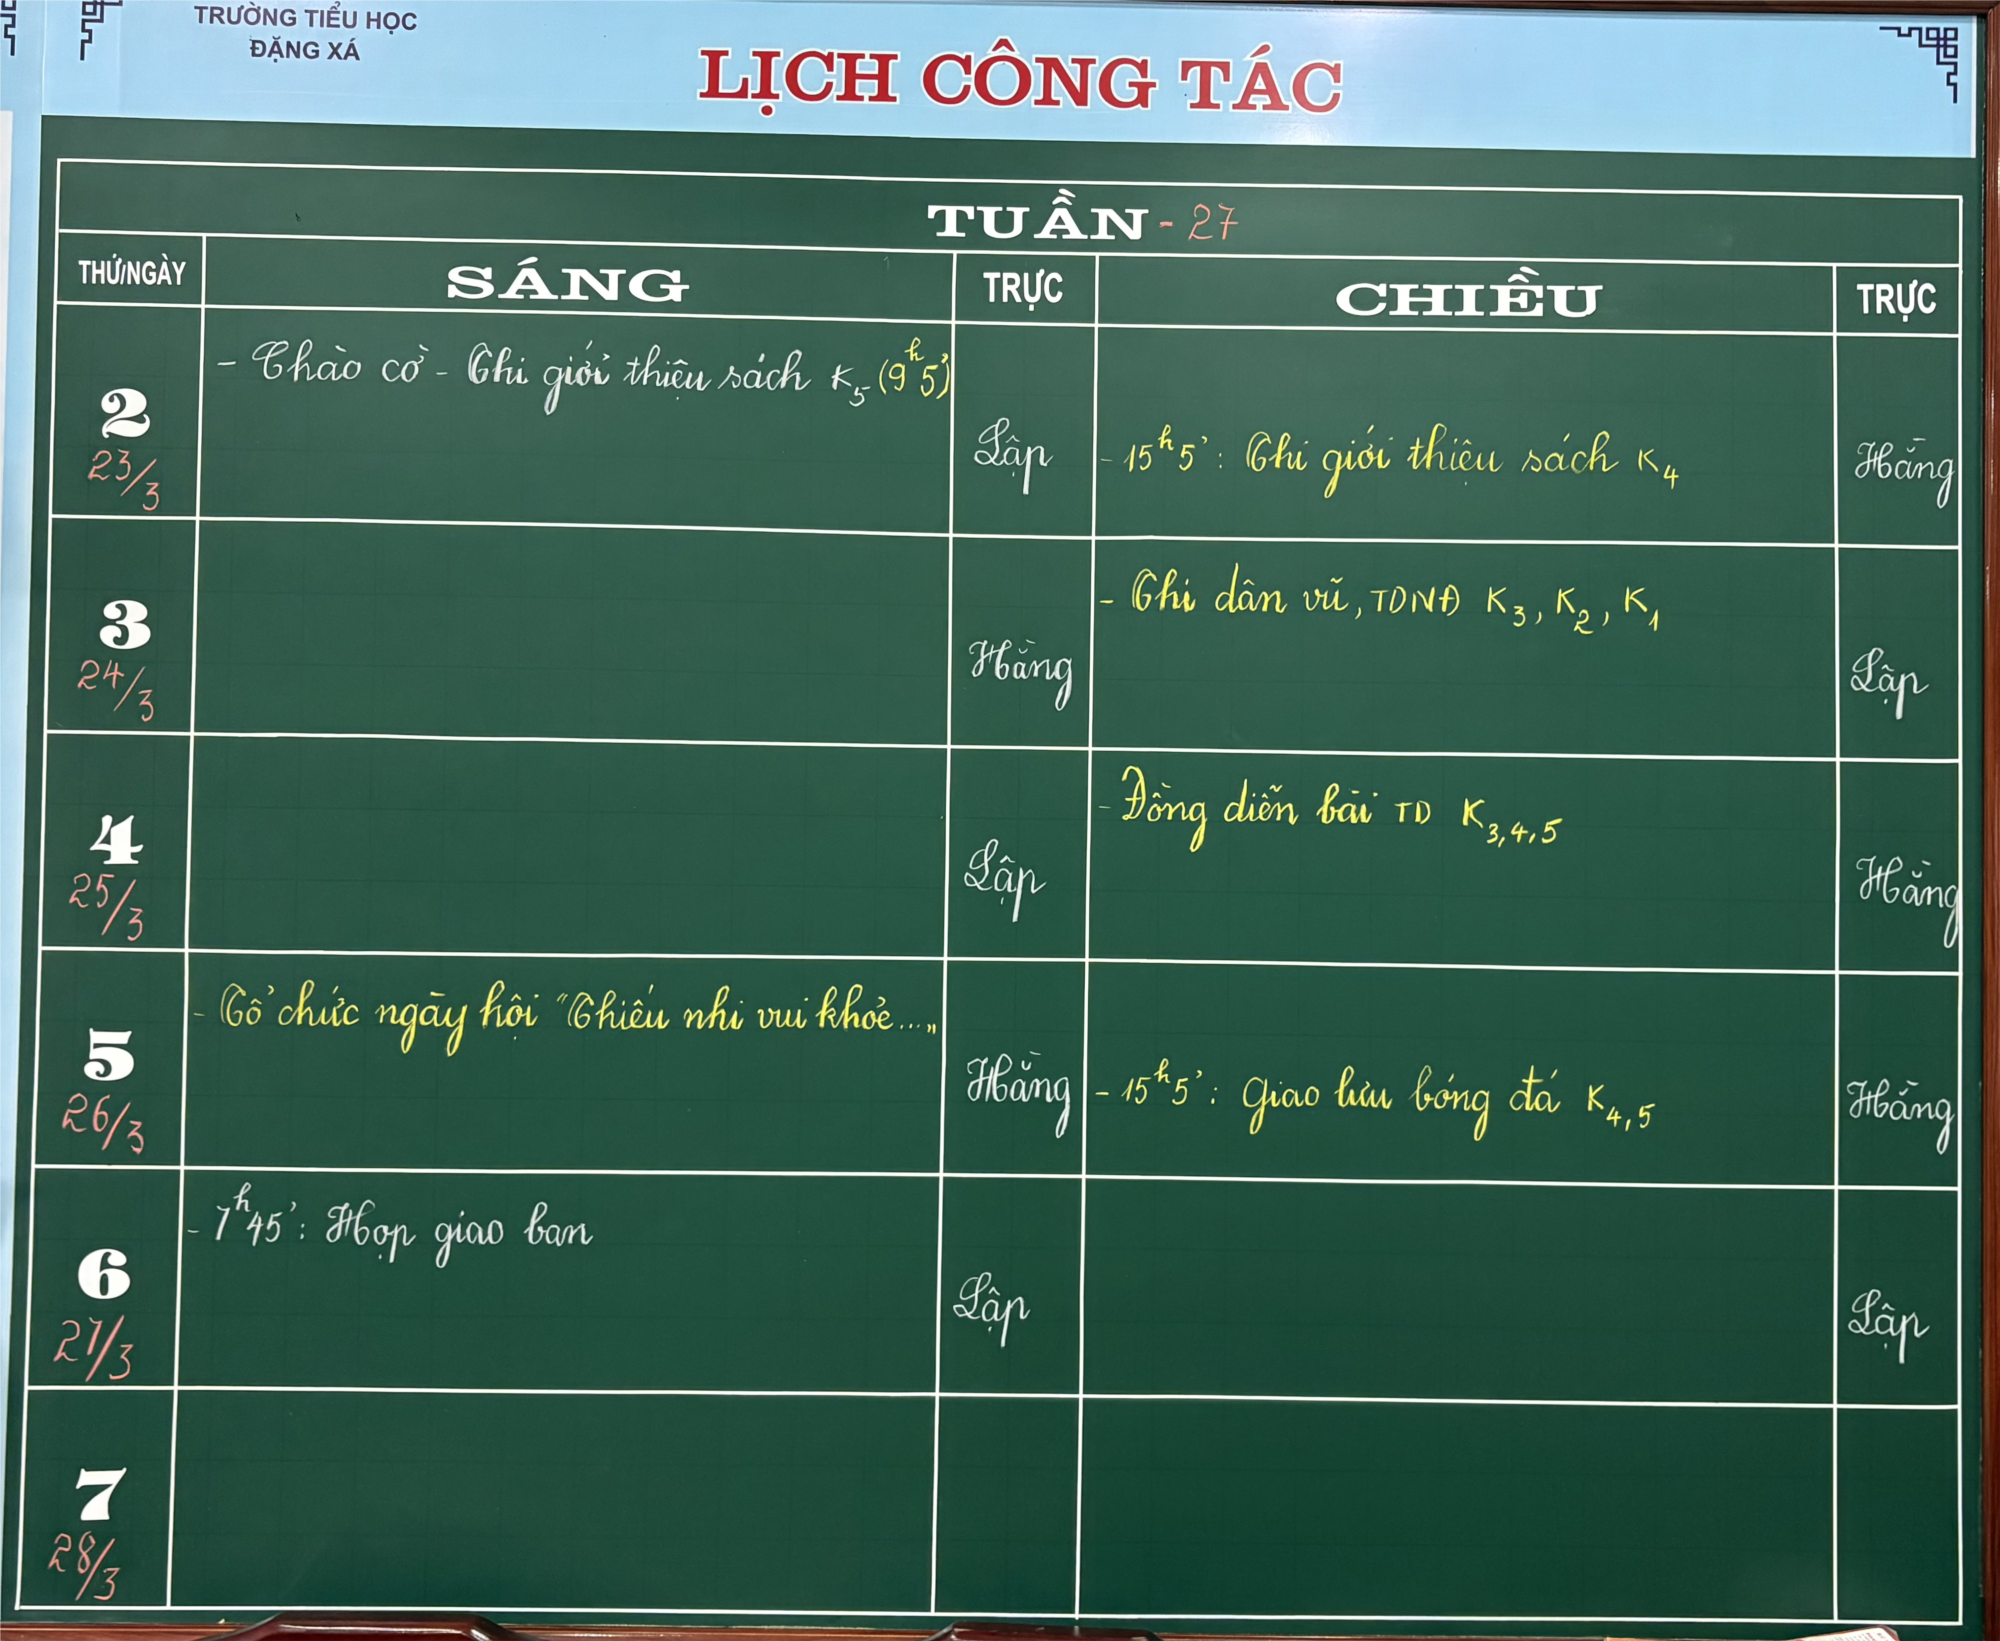 TRƯỜNG TIỂU HỌC
ĐẶNG XÁ
LỊCH CÔNG TÁC
TUẦN - 27
THỨ/NGÀY SÁNG TRỰC CHIỀU TRỰC
- Chào cờ - Thi giới thiệu sách K5 (9h5')
2 23/3 Lập - 15h5' : Thi giới thiệu sách K4 Hằng
- Thi dân vũ, TDNĐ K3, K2, K1
3 24/3 Hằng Lập
- Đồng diễn bài TD K3,4,5
4 25/3 Lập Hằng
- Tổ chức ngày hội "Thiếu nhi vui khỏe..."
5 26/3 Hằng - 15h5' : Giao lưu bóng đá K4,5 Hằng
- 7h45' : Họp giao ban
6 27/3 Lập Lập
7 28/3